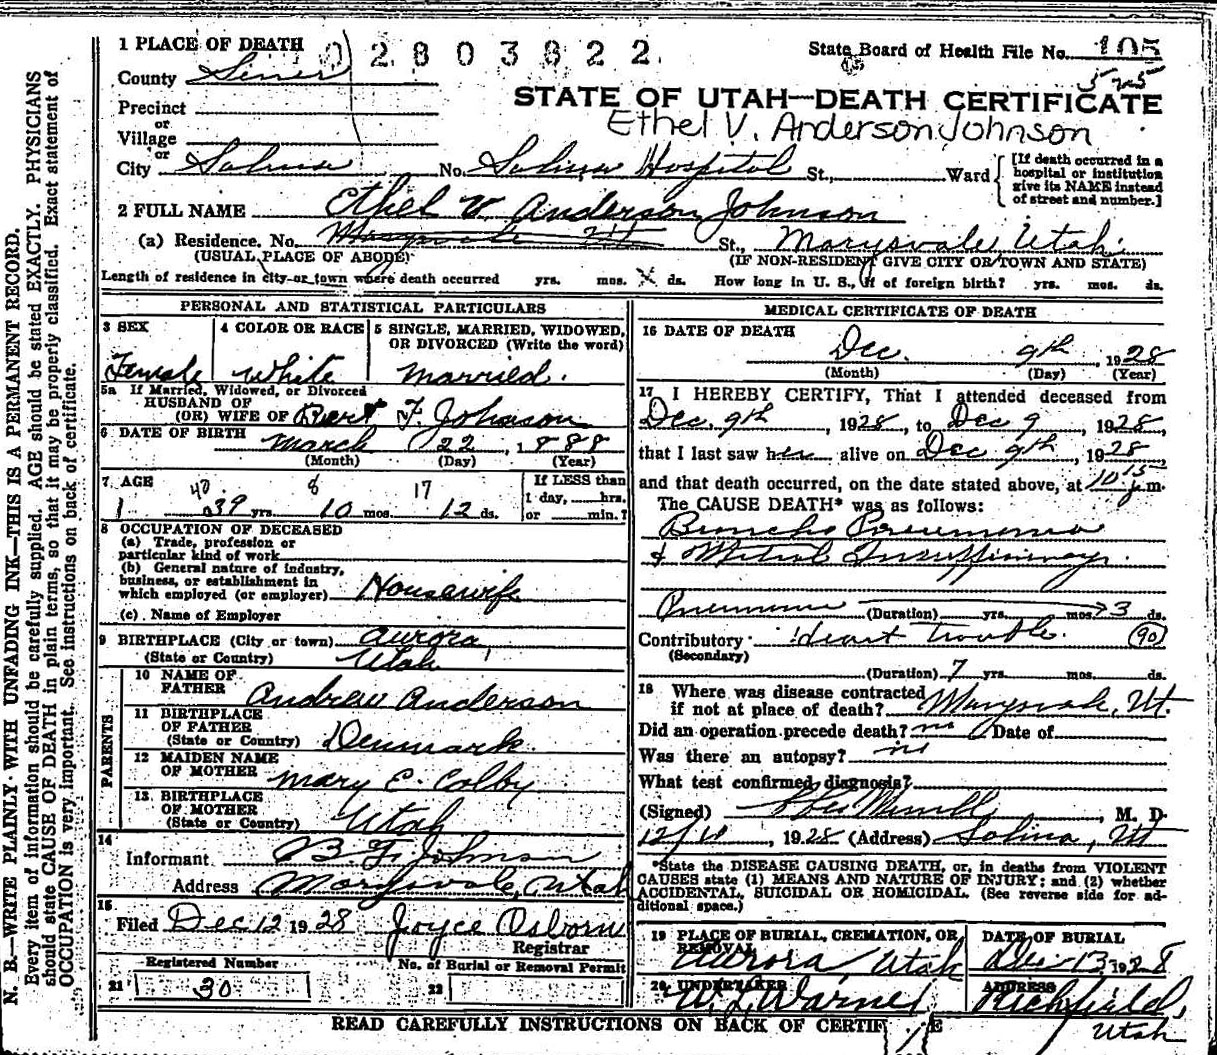 1 PLACE OF DEATH
0 2 8 0 3 8 2 2
State Board of Health File No. 105
575
County Sevier
STATE OF UTAH—DEATH CERTIFICATE
Precinct
or
Village
Ethel V. Anderson Johnson
or
City Salina No. Salina Hospital St., Ward
[If death occurred in a
hospital or institution
give its NAME instead
of street and number.]
2 FULL NAME Ethel V. Anderson Johnson
(a) Residence. No. Marysvale Ut St., Marysvale, Utah.
(USUAL PLACE OF ABODE) (IF NON-RESIDENT GIVE CITY OR TOWN AND STATE)
Length of residence in city or town where death occurred yrs. mos. ds. How long in U. S., if of foreign birth? yrs. mos. ds.
PERSONAL AND STATISTICAL PARTICULARS
3 SEX
Female
4 COLOR OR RACE
White
5 SINGLE, MARRIED, WIDOWED,
OR DIVORCED (Write the word)
Married.
5a If Married, Widowed, or Divorced
HUSBAND OF
(OR) WIFE OF Bert F. Johnson
6 DATE OF BIRTH March 22, 1888
(Month) (Day) (Year)
7 AGE
40 8 17
39 yrs. 10 mos. 12 ds.
If LESS than
1 day, hrs.
or min.?
8 OCCUPATION OF DECEASED
(a) Trade, profession or
particular kind of work
(b) General nature of industry,
business, or establishment in
which employed (or employer) Housewife
(c) Name of Employer
9 BIRTHPLACE (City or town) Aurora,
(State or Country) Utah
PARENTS
10 NAME OF
FATHER Andrew Anderson
11 BIRTHPLACE
OF FATHER
(State or Country) Denmark.
12 MAIDEN NAME
OF MOTHER Mary E. Colby
13 BIRTHPLACE
OF MOTHER
(State or Country) Utah
14
Informant B. F. Johnson
Address Marysvale, Utah
15
Filed Dec 12 1928 Joyce Osborn
Registrar
Registered Number
21 30
No. of Burial or Removal Permit
22
MEDICAL CERTIFICATE OF DEATH
16 DATE OF DEATH
Dec. 9th 1928
(Month) (Day) (Year)
17 I HEREBY CERTIFY, That I attended deceased from
Dec. 9th, 1928, to Dec 9, 1928,
that I last saw her alive on Dec 9th, 1928
and that death occurred, on the date stated above, at 10 15 p.m.
The CAUSE DEATH* was as follows:
Broncho Pneumonia
& Mitral Insufficiency.
Pneumonia (Duration) yrs. mos. 3 ds.
Contributory Heart trouble. 90
(Secondary)
(Duration) 7 yrs. mos. ds.
18 Where was disease contracted
if not at place of death? Marysvale, Ut.
Did an operation precede death? no Date of
Was there an autopsy? no
What test confirmed diagnosis?
(Signed) M. D.
12/10, 1928 (Address) Salina, Ut
*State the DISEASE CAUSING DEATH, or, in deaths from VIOLENT
CAUSES state (1) MEANS AND NATURE OF INJURY; and (2) whether
ACCIDENTAL, SUICIDAL OR HOMICIDAL. (See reverse side for ad-
ditional space.)
19 PLACE OF BURIAL, CREMATION, OR
REMOVAL
Aurora, Utah
DATE OF BURIAL
Dec 13, 1928
20 UNDERTAKER
W. L. Warner
ADDRESS
Richfield,
Utah
READ CAREFULLY INSTRUCTIONS ON BACK OF CERTIF E
N. B.—WRITE PLAINLY WITH UNFADING INK—THIS IS A PERMANENT RECORD.
Every item of information should be carefully supplied. AGE should be stated EXACTLY. PHYSICIANS
should state CAUSE OF DEATH in plain terms, so that it may be properly classified. Exact statement of
OCCUPATION is very important. See instructions on back of certificate.